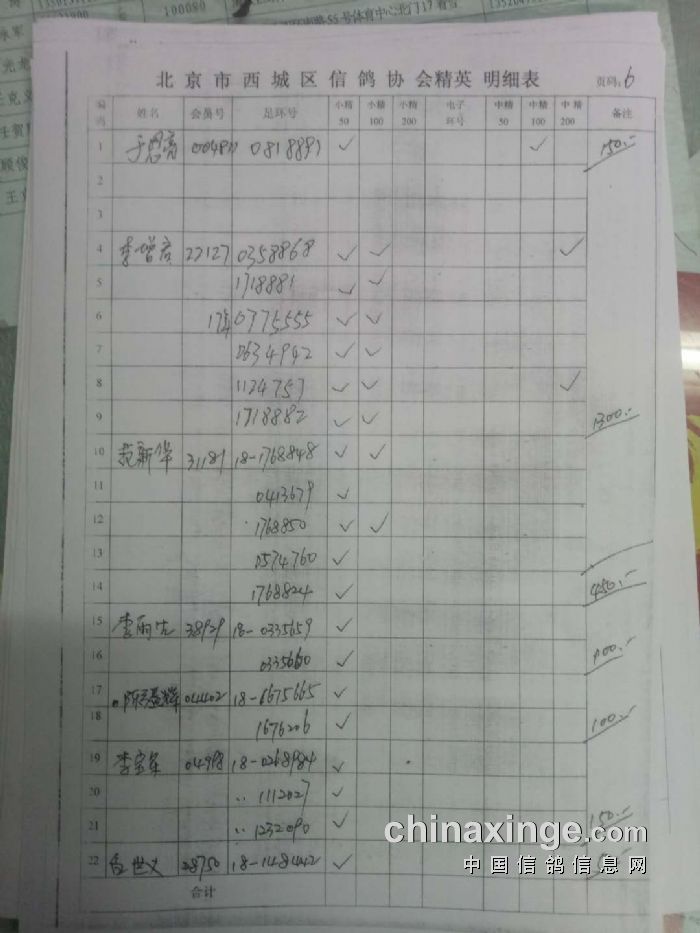 100080
55号体育中心北门17看台
北京市西城区信鸽协会精英 明细表 页码: 6
编号 姓名 会员号 足环号 小精50 小精100 小精200 电子环号 中精50 中精100 中精200 备注
1 0818891 ✓ ✓ 150.-
2
3
4 李增君 22127 0358868 ✓ ✓ ✓
5 1718881 ✓ ✓
6 17年 0375555 ✓ ✓
7 0634942 ✓ ✓
8 1124757 ✓ ✓ ✓
9 1718882 ✓ ✓ 1300.-
10 范新华 31181 18-1768848 ✓ ✓
11 0413679 ✓
12 1768850 ✓ ✓
13 0574760 ✓
14 1768824 ✓ 450.-
15 38929 18-0335659 ✓
16 0335660 ✓ 100.-
17 04402 18-6675665 ✓
18 1676206 ✓ 100.-
19 18-0268984 ✓
20 〃 1112027 ✓
21 〃 1232090 ✓ 150.-
22 28750 18-1484442 ✓ 50.-
合计
chinaxinge.com
中国信鸽信息网